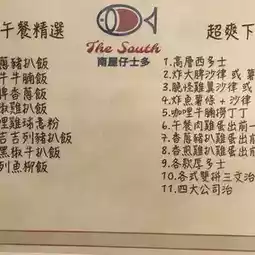 午餐精選
The South
南屋仔士多
超爽下
蔥豬扒飯
牛牛腩飯
香蔥飯
雞扒飯
哩雞球意粉
吉列豬扒飯
黑椒牛扒飯
列魚柳飯
1.高層西多士
2.炸大脾沙律 或
3.脆怪雞翼沙律 或
4.炸魚薯條 + 沙律
5.咖哩牛腩撈丁丁
6.午餐肉雞蛋出前一
7.香蔥豬扒雞蛋出前
8.香煎雞扒雞蛋出前
9.各款厚多士
10.各式雙拼三文治
11.四大公司治